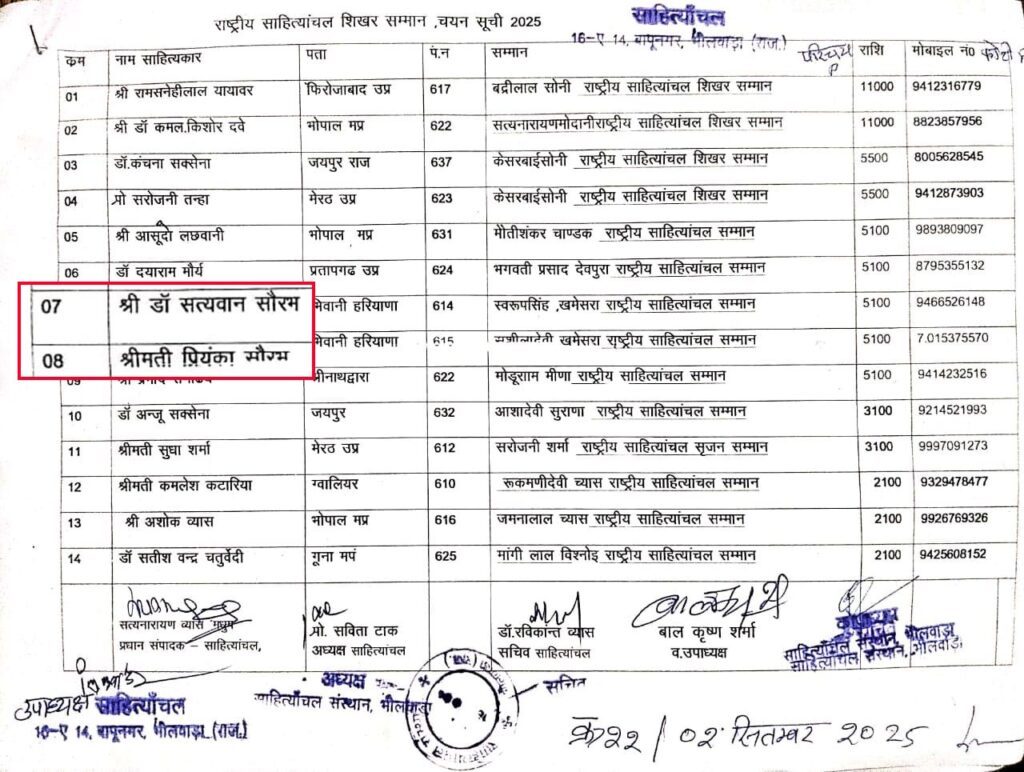 राष्ट्रीय साहित्यांचल शिखर सम्मान ,चयन सूची 2025
साहित्याँचल
16-ए 14, बापूनगर, भीलवाड़ा (राज.)
कम नाम साहित्यकार पता पं.न सम्मान परिचय P राशि मोबाइल नं0
01 श्री रामसनेहीलाल यायावर फिरोजाबाद उप्र 617 बद्रीलाल सोनी राष्ट्रीय साहित्यांचल शिखर सम्मान 11000 9412316779
02 श्री डॉ कमल.किशोर दवे भोपाल मप्र 622 सत्यनारायणमोदानीराष्ट्रीय साहित्यांचल शिखर सम्मान 11000 8823857956
03 डॉ.कंचना सक्सेना जयपुर राज 637 केसरबाईसोनी राष्ट्रीय साहित्यांचल शिखर सम्मान 5500 8005628545
04 प्रो सरोजनी तन्हा मेरठ उप्र 623 केसरबाईसोनी राष्ट्रीय साहित्यांचल शिखर सम्मान 5500 9412873903
05 श्री आसूदो लछवानी भोपाल मप्र 631 मोतीशंकर चाण्डक राष्ट्रीय साहित्यांचल सम्मान 5100 9893809097
06 डॉ दयाराम मौर्य प्रतापगढ उप्र 624 भगवती प्रसाद देवपुरा राष्ट्रीय साहित्यांचल सम्मान 5100 8795355132
07 श्री डॉ सत्यवान सौरभ भिवानी हरियाणा 614 स्वरूपसिंह ,खमेसरा राष्ट्रीय साहित्यांचल सम्मान 5100 9466526148
08 श्रीमती प्रियंका सौरभ भिवानी हरियाणा 615 खमेसरा राष्ट्रीय साहित्यांचल सम्मान 5100 7.015375570
09 श्रीनाथद्वारा 622 मोडूराम मीणा राष्ट्रीय साहित्यांचल सम्मान 5100 9414232516
10 डॉ अन्जू सक्सेना जयपुर 632 आशादेवी सुराणा राष्ट्रीय साहित्यांचल सम्मान 3100 9214521993
11 श्रीमती सुधा शर्मा मेरठ उप्र 612 सरोजनी शर्मा राष्ट्रीय साहित्यांचल सृजन सम्मान 3100 9997091273
12 श्रीमती कमलेश कटारिया ग्वालियर 610 रूकमणीदेवी व्यास राष्ट्रीय साहित्यांचल सम्मान 2100 9329478477
13 श्री अशोक व्यास भोपाल मप्र 616 जमनालाल व्यास राष्ट्रीय साहित्यांचल सम्मान 2100 9926769326
14 डॉ सतीश चन्द्र चतुर्वेदी गूना मपं 625 मांगी लाल विश्नोइ राष्ट्रीय साहित्यांचल सम्मान 2100 9425608152
सत्यनारायण व्यास मधुप प्रो. सविता टाक डॉ.रविकान्त व्यास बाल कृष्ण शर्मा कोषाध्यक्ष
प्रधान संपादक – साहित्यांचल, अध्यक्ष साहित्यांचल सचिव साहित्यांचल व.उपाध्यक्ष साहित्याँचल संस्थान, भीलवाड़ा
साहित्याँचल संस्थान, भीलवाड़ा
अध्यक्ष सचिव
साहित्याँचल संस्थान, भीलवाड़ा
उपाध्यक्ष साहित्याँचल
16-ए 14, बापूनगर, भीलवाड़ा (राज.)
02 सितम्बर 2025